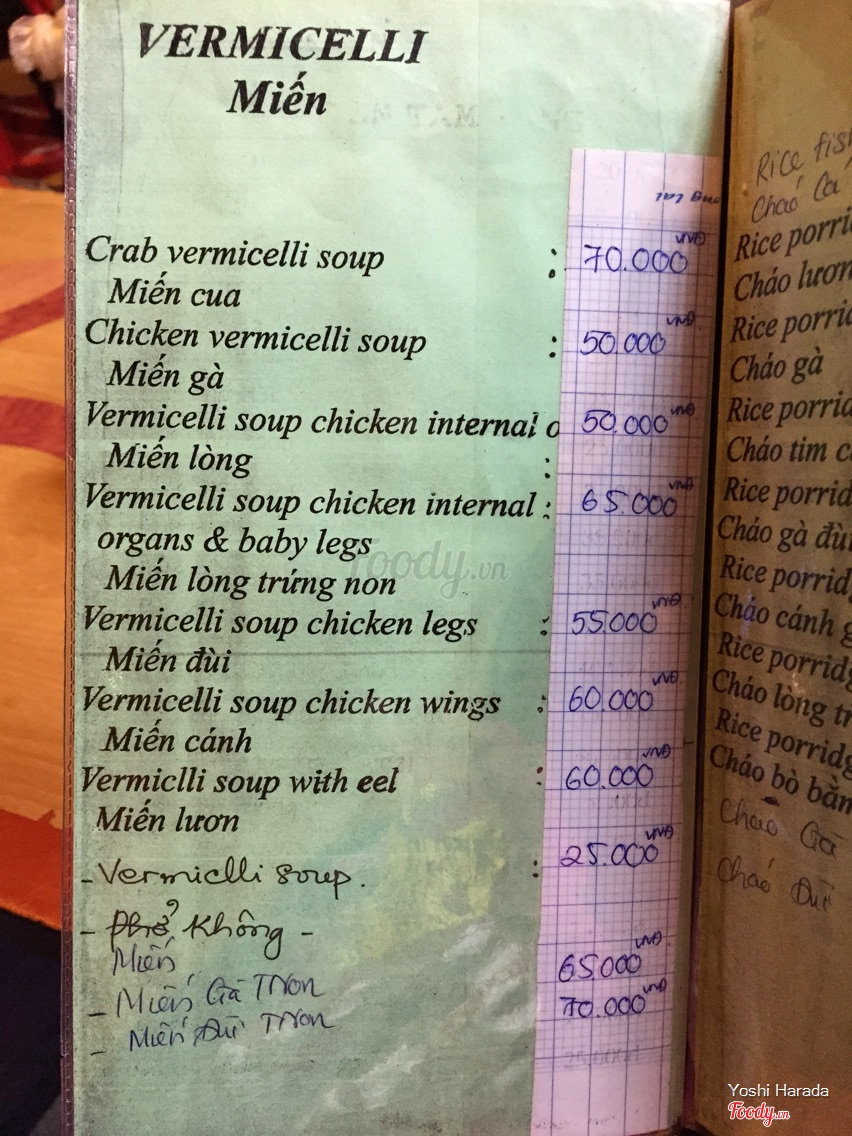 VERMICELLI
Miến
Crab vermicelli soup : 70.000 VNĐ
Miến cua
Chicken vermicelli soup : 50.000 VNĐ
Miến gà
Vermicelli soup chicken internal o 50.000 VNĐ
Miến lòng :
Vermicelli soup chicken internal : 65.000 VNĐ
organs & baby legs
Miến lòng trứng non
Vermicelli soup chicken legs : 55.000 VNĐ
Miến đùi
Vermicelli soup chicken wings : 60.000 VNĐ
Miến cánh
Vermiclli soup with eel : 60.000 VNĐ
Miến lươn
- Vermiclli soup. : 25.000 VNĐ
- Phở Không -
Miến
- Miến Gà TNon 65.000 VNĐ
- Miến Đùi TNon 70.000 VNĐ
Rice fish
Cháo Cá
Rice porri
Cháo lươn
Rice porrid
Cháo gà
Rice porrid
Cháo tim c
Rice porrid
Cháo gà đùi
Rice porridg
Cháo cánh g
Rice porridg
Cháo lòng tr
Rice porridg
Cháo bò bằm
Cháo Gà
Cháo Đùi
Foody.vn
Yoshi Harada
Foody.vn